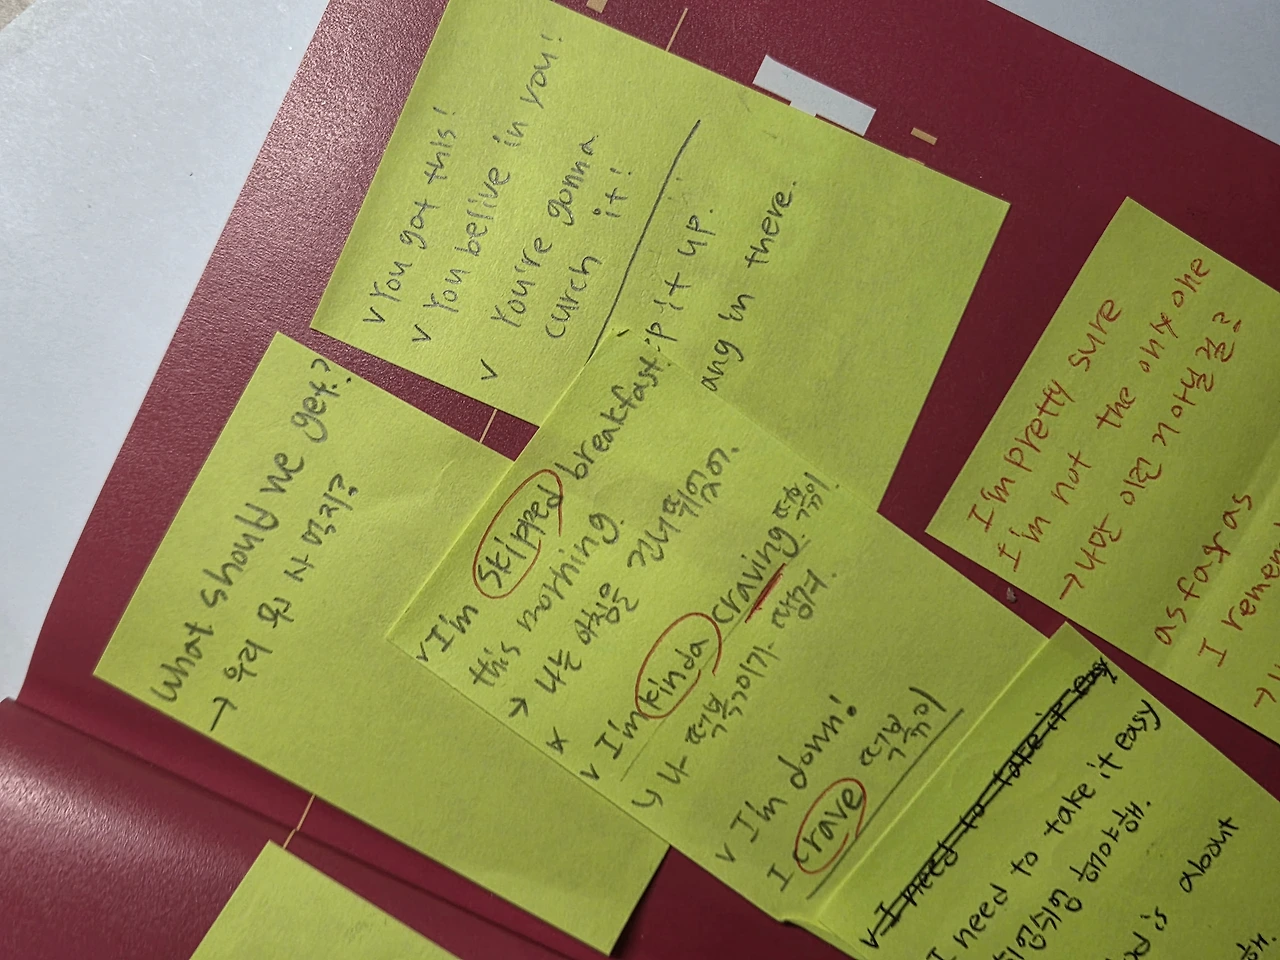 v You got this!
v You belive in you!
v You're gonna
curch it!
it up.
ang in there.
What should we get?
→ 우리 뭐 사 먹지?
v I'm skipped breakfast
this morning.
→ 나는 아침은 건너 뛰었어.
v I'm kinda craving 떡볶이.
↳ 나 떡볶이가 땡겨.
v I'm down!
I crave 떡볶이
I'm pretty sure
I'm not the only one
→ 나만 이런 거 아닐 걸?
as far as
I remem
v I need to take it easy
I need to take it easy
해야 해.
is about
해.